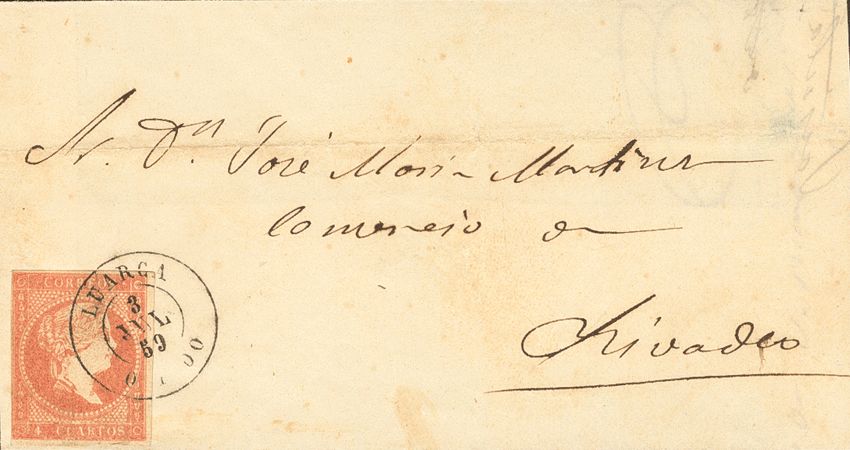 A. Dn José María Martinez
Comercio de
Rivadeo
LUARCA
3
JUL
59
CORREOS
4 CUARTOS